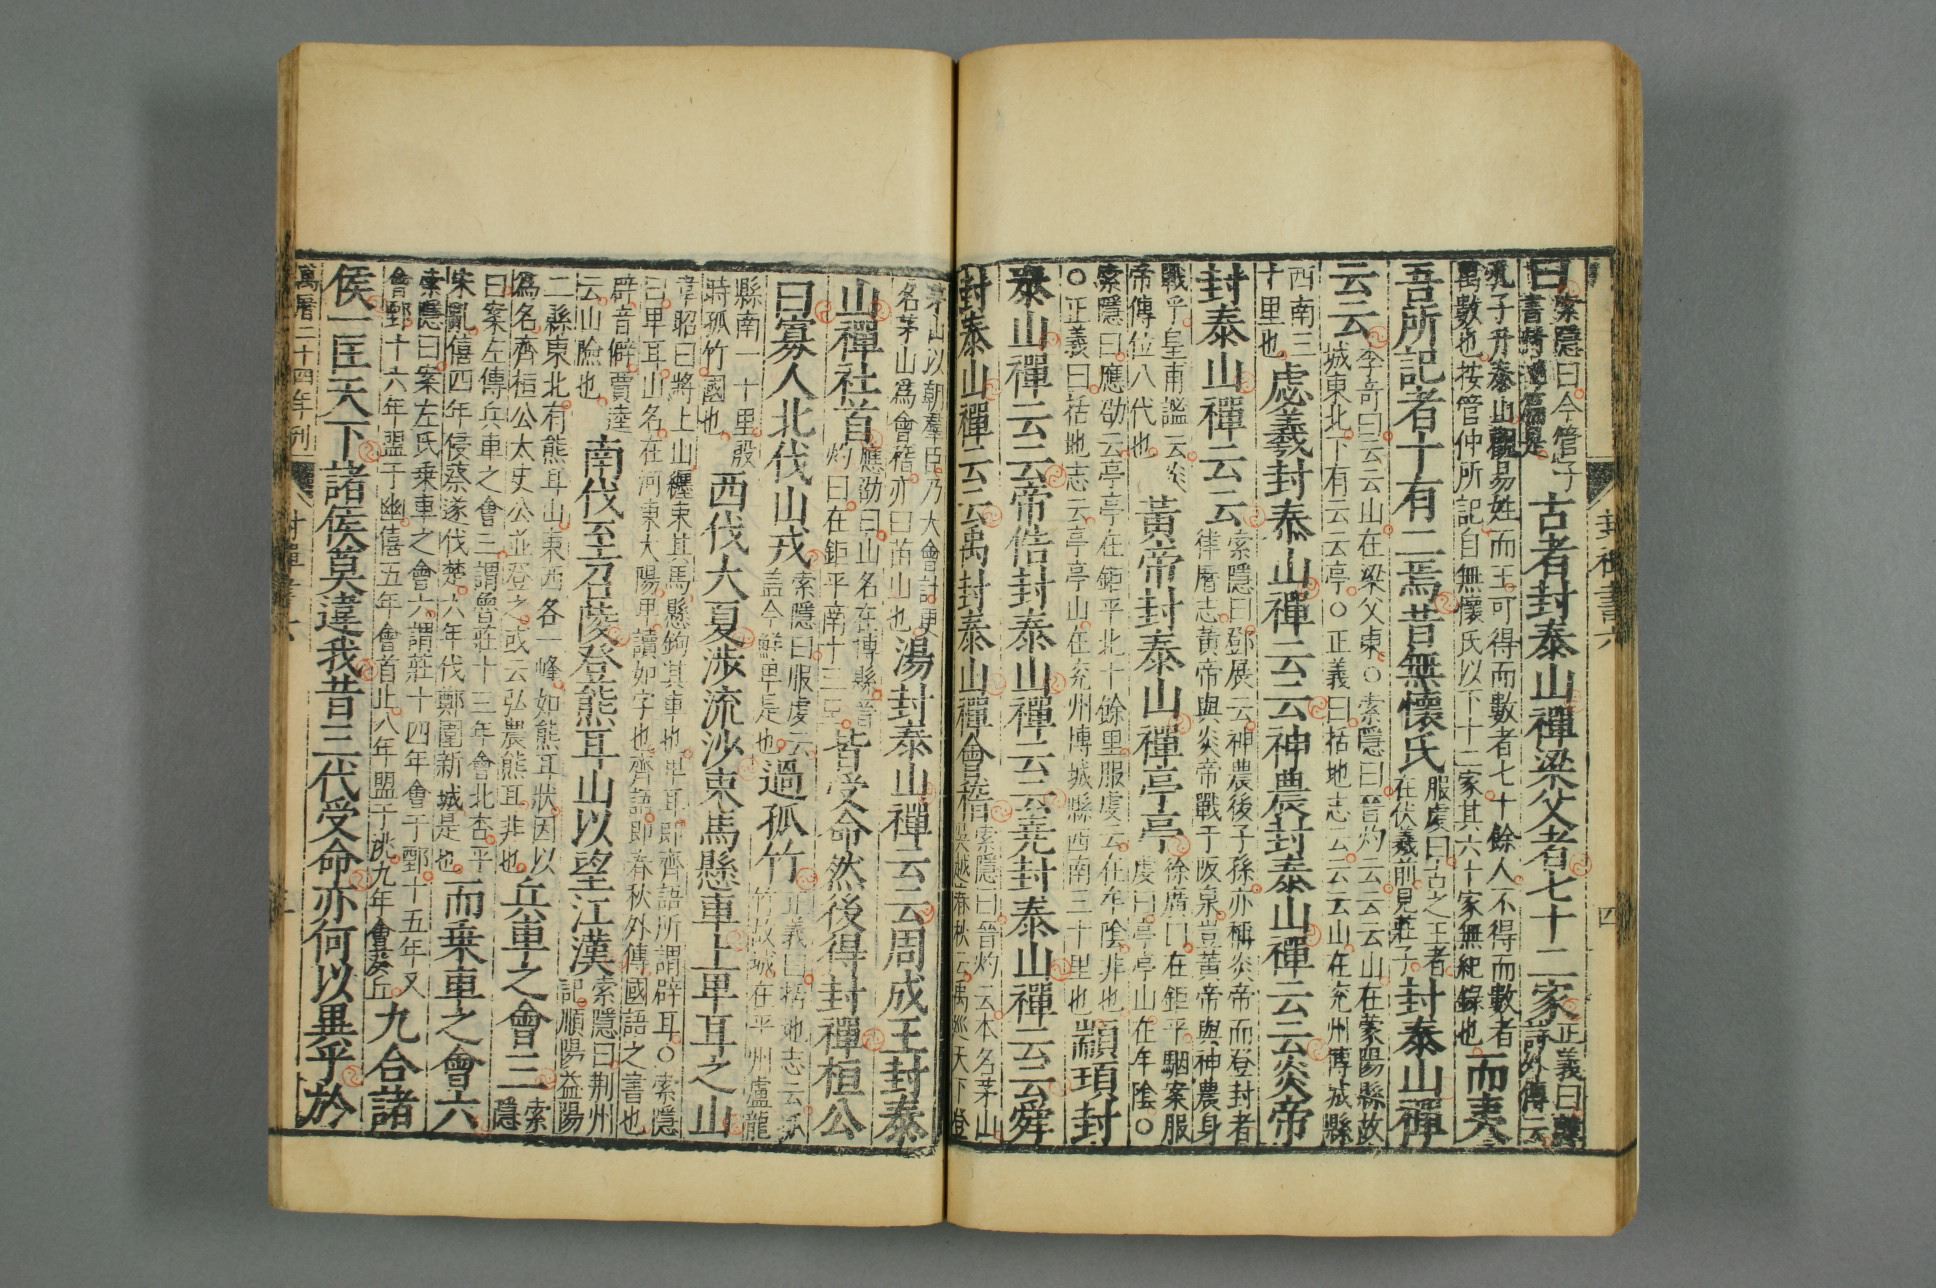 封禪書六 四
曰索隱曰今管子書封禪篇是古者封泰山禪梁父者七十二家正義曰韓詩外傳云
孔子升泰山觀易姓而王可得而數者七十餘人不得而數者萬數也按管仲所記自無懷氏以下十二家其六十家無紀錄也而夷
吾所記者十有二焉昔無懷氏服虔曰古之王者在伏羲前見莊子封泰山禪
云云李奇曰云云山在梁父東○索隱曰晉灼云云云山在蒙陽縣故城東北下有云云亭○正義曰括地志云云云山在兗州博城縣
西南三十里也虙羲封泰山禪云云神農封泰山禪云云炎帝
封泰山禪云云索隱曰鄧展云神農後子孫亦稱炎帝而登封者律曆志黃帝與炎帝戰于阪泉豈黃帝與神農身
戰乎皇甫謐云炎帝傳位八代也黃帝封泰山禪亭亭徐廣曰在鉅平駰案服虔曰亭亭山在牟陰○
索隱曰應劭云亭亭在鉅平北十餘里服虔云在牟陰非也○正義曰括地志云亭亭山在兗州博城縣西南三十里也顓頊封
泰山禪云云帝俈封泰山禪云云堯封泰山禪云云舜
封泰山禪云云禹封泰山禪會稽索隱曰晉灼云本名茅山吳越春秋云禹巡天下登
茅山以朝羣臣乃大會計更名茅山為會稽亦曰苗山也湯封泰山禪云云周成王封泰
山禪社首應劭曰山名在博縣晉灼曰在鉅平南十三里皆受命然後得封禪桓公
曰寡人北伐山戎索隱曰服虔云蓋今鮮卑是也過孤竹正義曰括地志云孤竹故城在平州盧龍
縣南一十里殷時孤竹國也西伐大夏涉流沙束馬懸車上卑耳之山
韋昭曰將上山纒束其馬懸鉤其車也卑耳即齊語所謂辟耳○索隱曰卑耳山名在河東大陽卑讀如字也齊語即春秋外傳國語之書也
辟音僻賈逵云山險也南伐至召陵登熊耳山以望江漢索隱曰荆州記順陽益陽
二縣東北有熊耳山東西各一峰如熊耳狀因以為名齊桓公太史公並登之或云弘農熊耳非也兵車之會三索隱
曰案左傳兵車之會三謂魯莊十三年會北杏平宋亂僖四年侵蔡遂伐楚六年伐鄭圍新城是也而乘車之會六
索隱曰案左氏乘車之會六謂莊十四年會于鄄十五年又會鄄十六年盟于幽僖五年會首止八年盟于洮九年會葵丘九合諸
侯一匡天下諸侯莫違我昔三代受命亦何以異乎於
萬曆二十四年刊 封禪書六